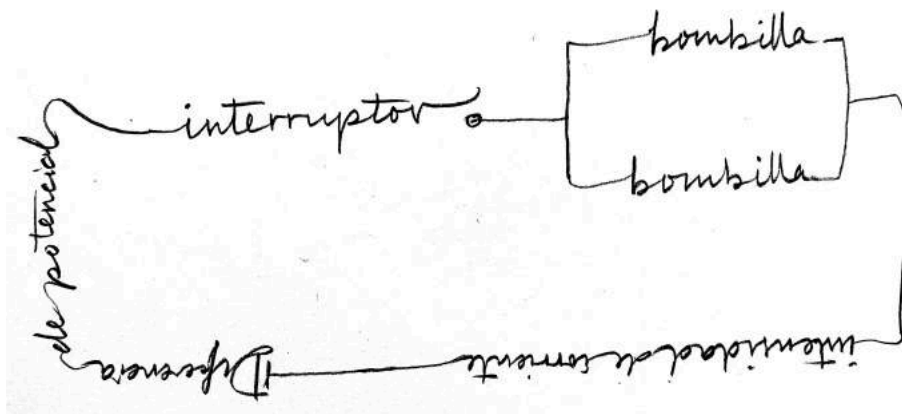 interruptor
bombilla
bombilla
intensidad de corriente
Diferencia
de potencial